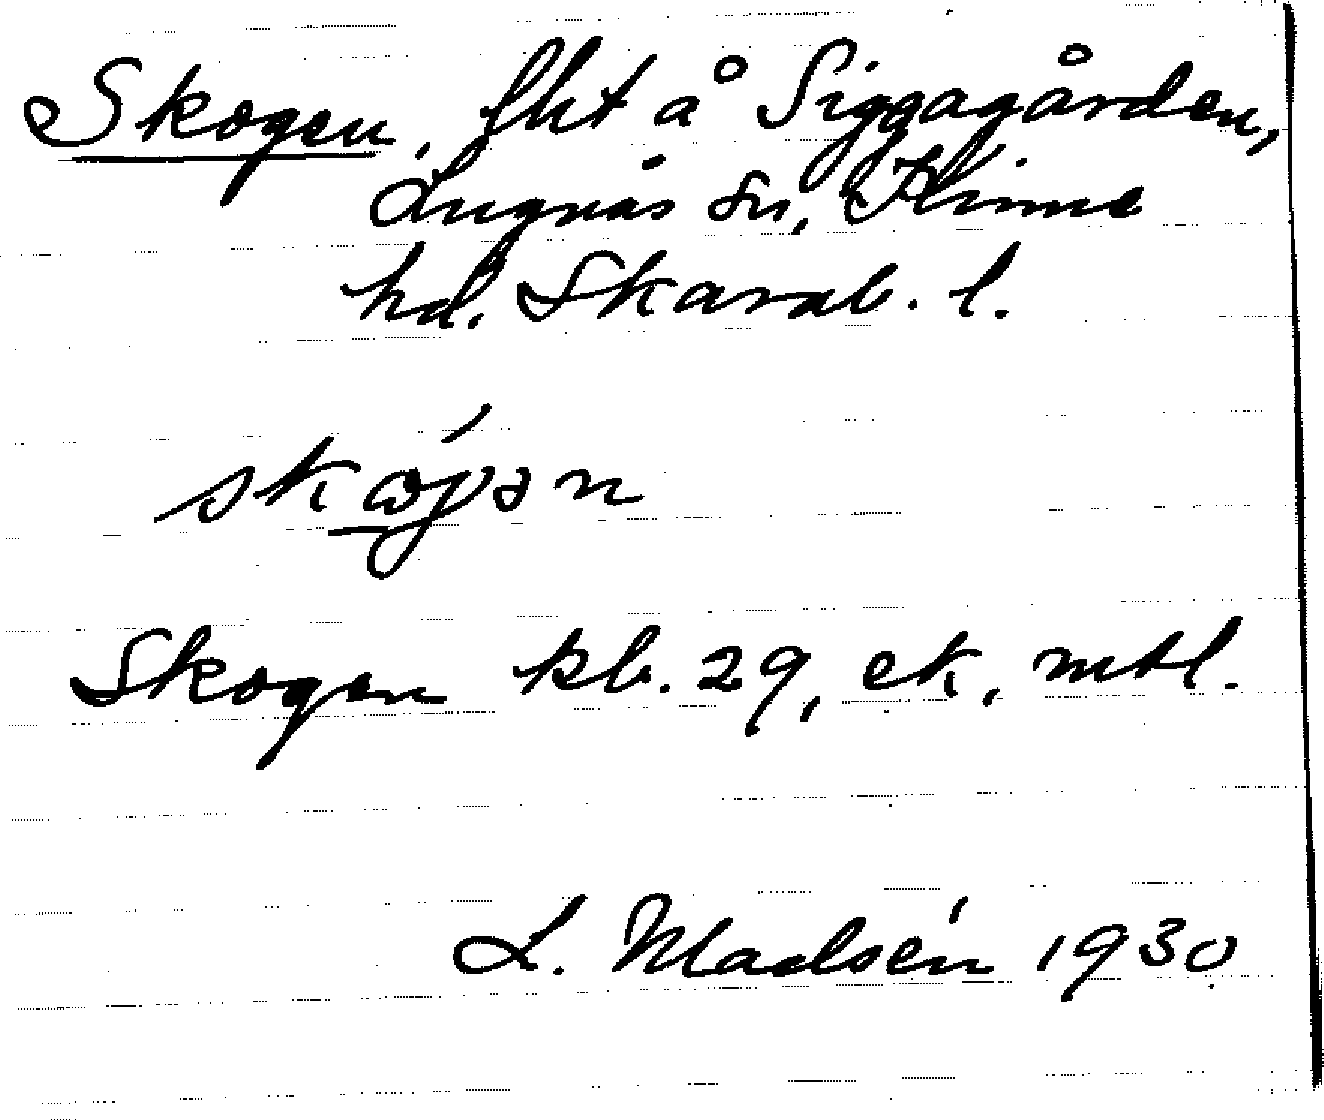 Skogen, lht å Siggagården,
Lugnås sn, Kinne
hd. Skarab. l.
skógən
Skogen kb. 29, ek, mtl.
L. Madsén 1930